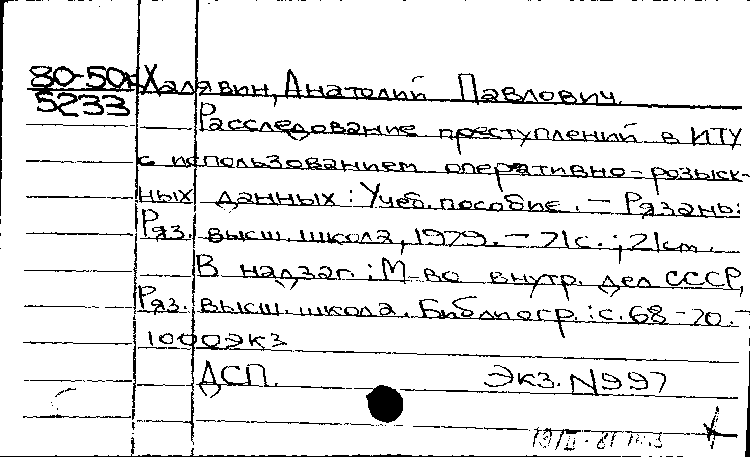 80-50к Халявин, Анатолий Павлович.
5233
Расследование преступлений в ИТУ
с использованием оперативно-розыск-
ных данных: Учеб. пособие. — Рязань:
Ряз. высш. школа, 1979. — 71с.; 21см.
В надзаг.: М-во внутр. дел СССР,
Ряз. высш. школа. Библиогр.: с. 68-70. —
1000экз
ДСП. Экз. N997